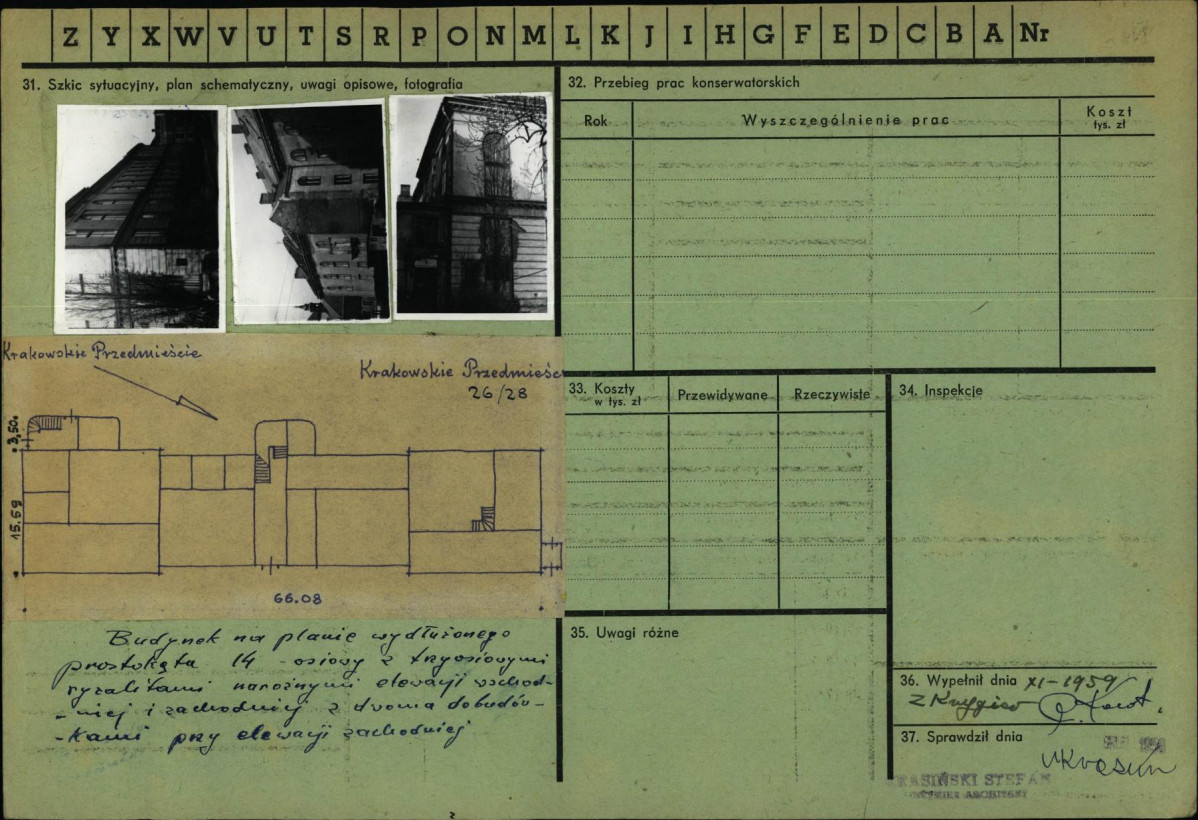 Z Y X W V U T S R P O N M L K J I H G F E D C B A Nr
31. Szkic sytuacyjny, plan schematyczny, uwagi opisowe, fotografia
Krakowskie Przedmieście
Krakowskie Przedmieśc
26/28
3,50.
15.59
66.08
Budynek na planie wydłużonego
prostokąta 14 - osiowy z trzyosiowymi
ryzalitami narożnymi elewacji wschod-
- niej i zachodniej z dwoma dobudów-
- kami przy elewacji zachodniej
32. Przebieg prac konserwatorskich
Rok
Wyszczególnienie prac
Koszt
tys. zł
33. Koszty
w tys. zł
Przewidywane
Rzeczywiste
34. Inspekcje
35. Uwagi różne
36. Wypełnił dnia XI-1959
37. Sprawdził dnia
KASIŃSKI STEFAN